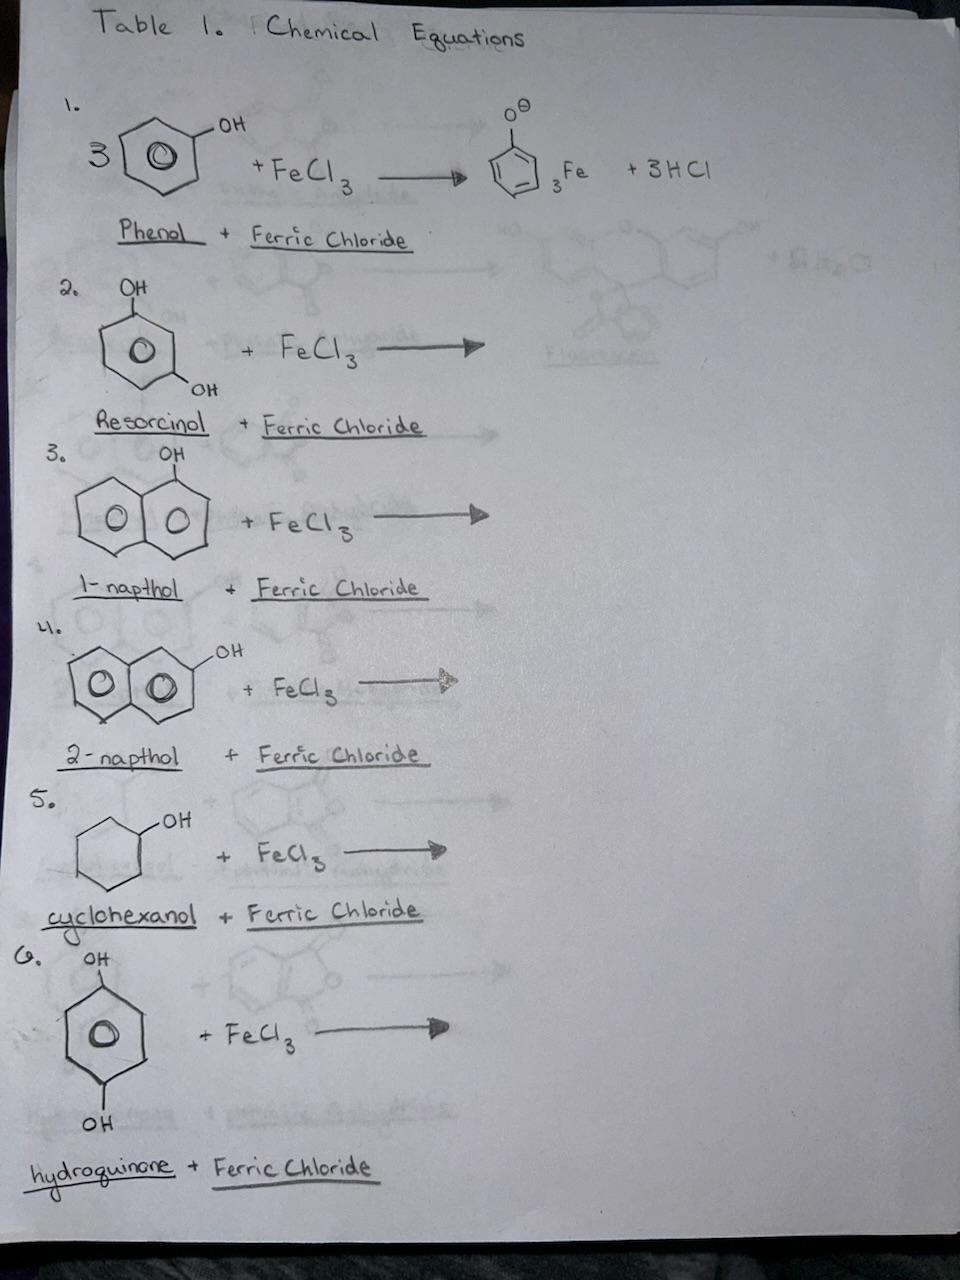 Table 1. Chemical Equations
1.
3 OH + FeCl3 → O⊖ 3Fe + 3HCl
Phenol + Ferric Chloride
2. OH
+ FeCl3 →
OH
Resorcinol + Ferric Chloride
3. OH
+ FeCl3 →
1-napthol + Ferric Chloride
4.
OH
+ FeCl3 →
2-napthol + Ferric Chloride
5.
OH
+ FeCl3 →
cyclohexanol + Ferric Chloride
6. OH
+ FeCl3 →
OH
hydroquinone + Ferric Chloride